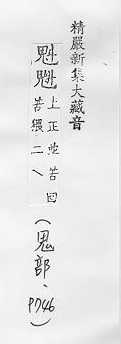 精嚴新集大藏音
魁
上正並苦回
苦猥二乀
(鬼部、P746)